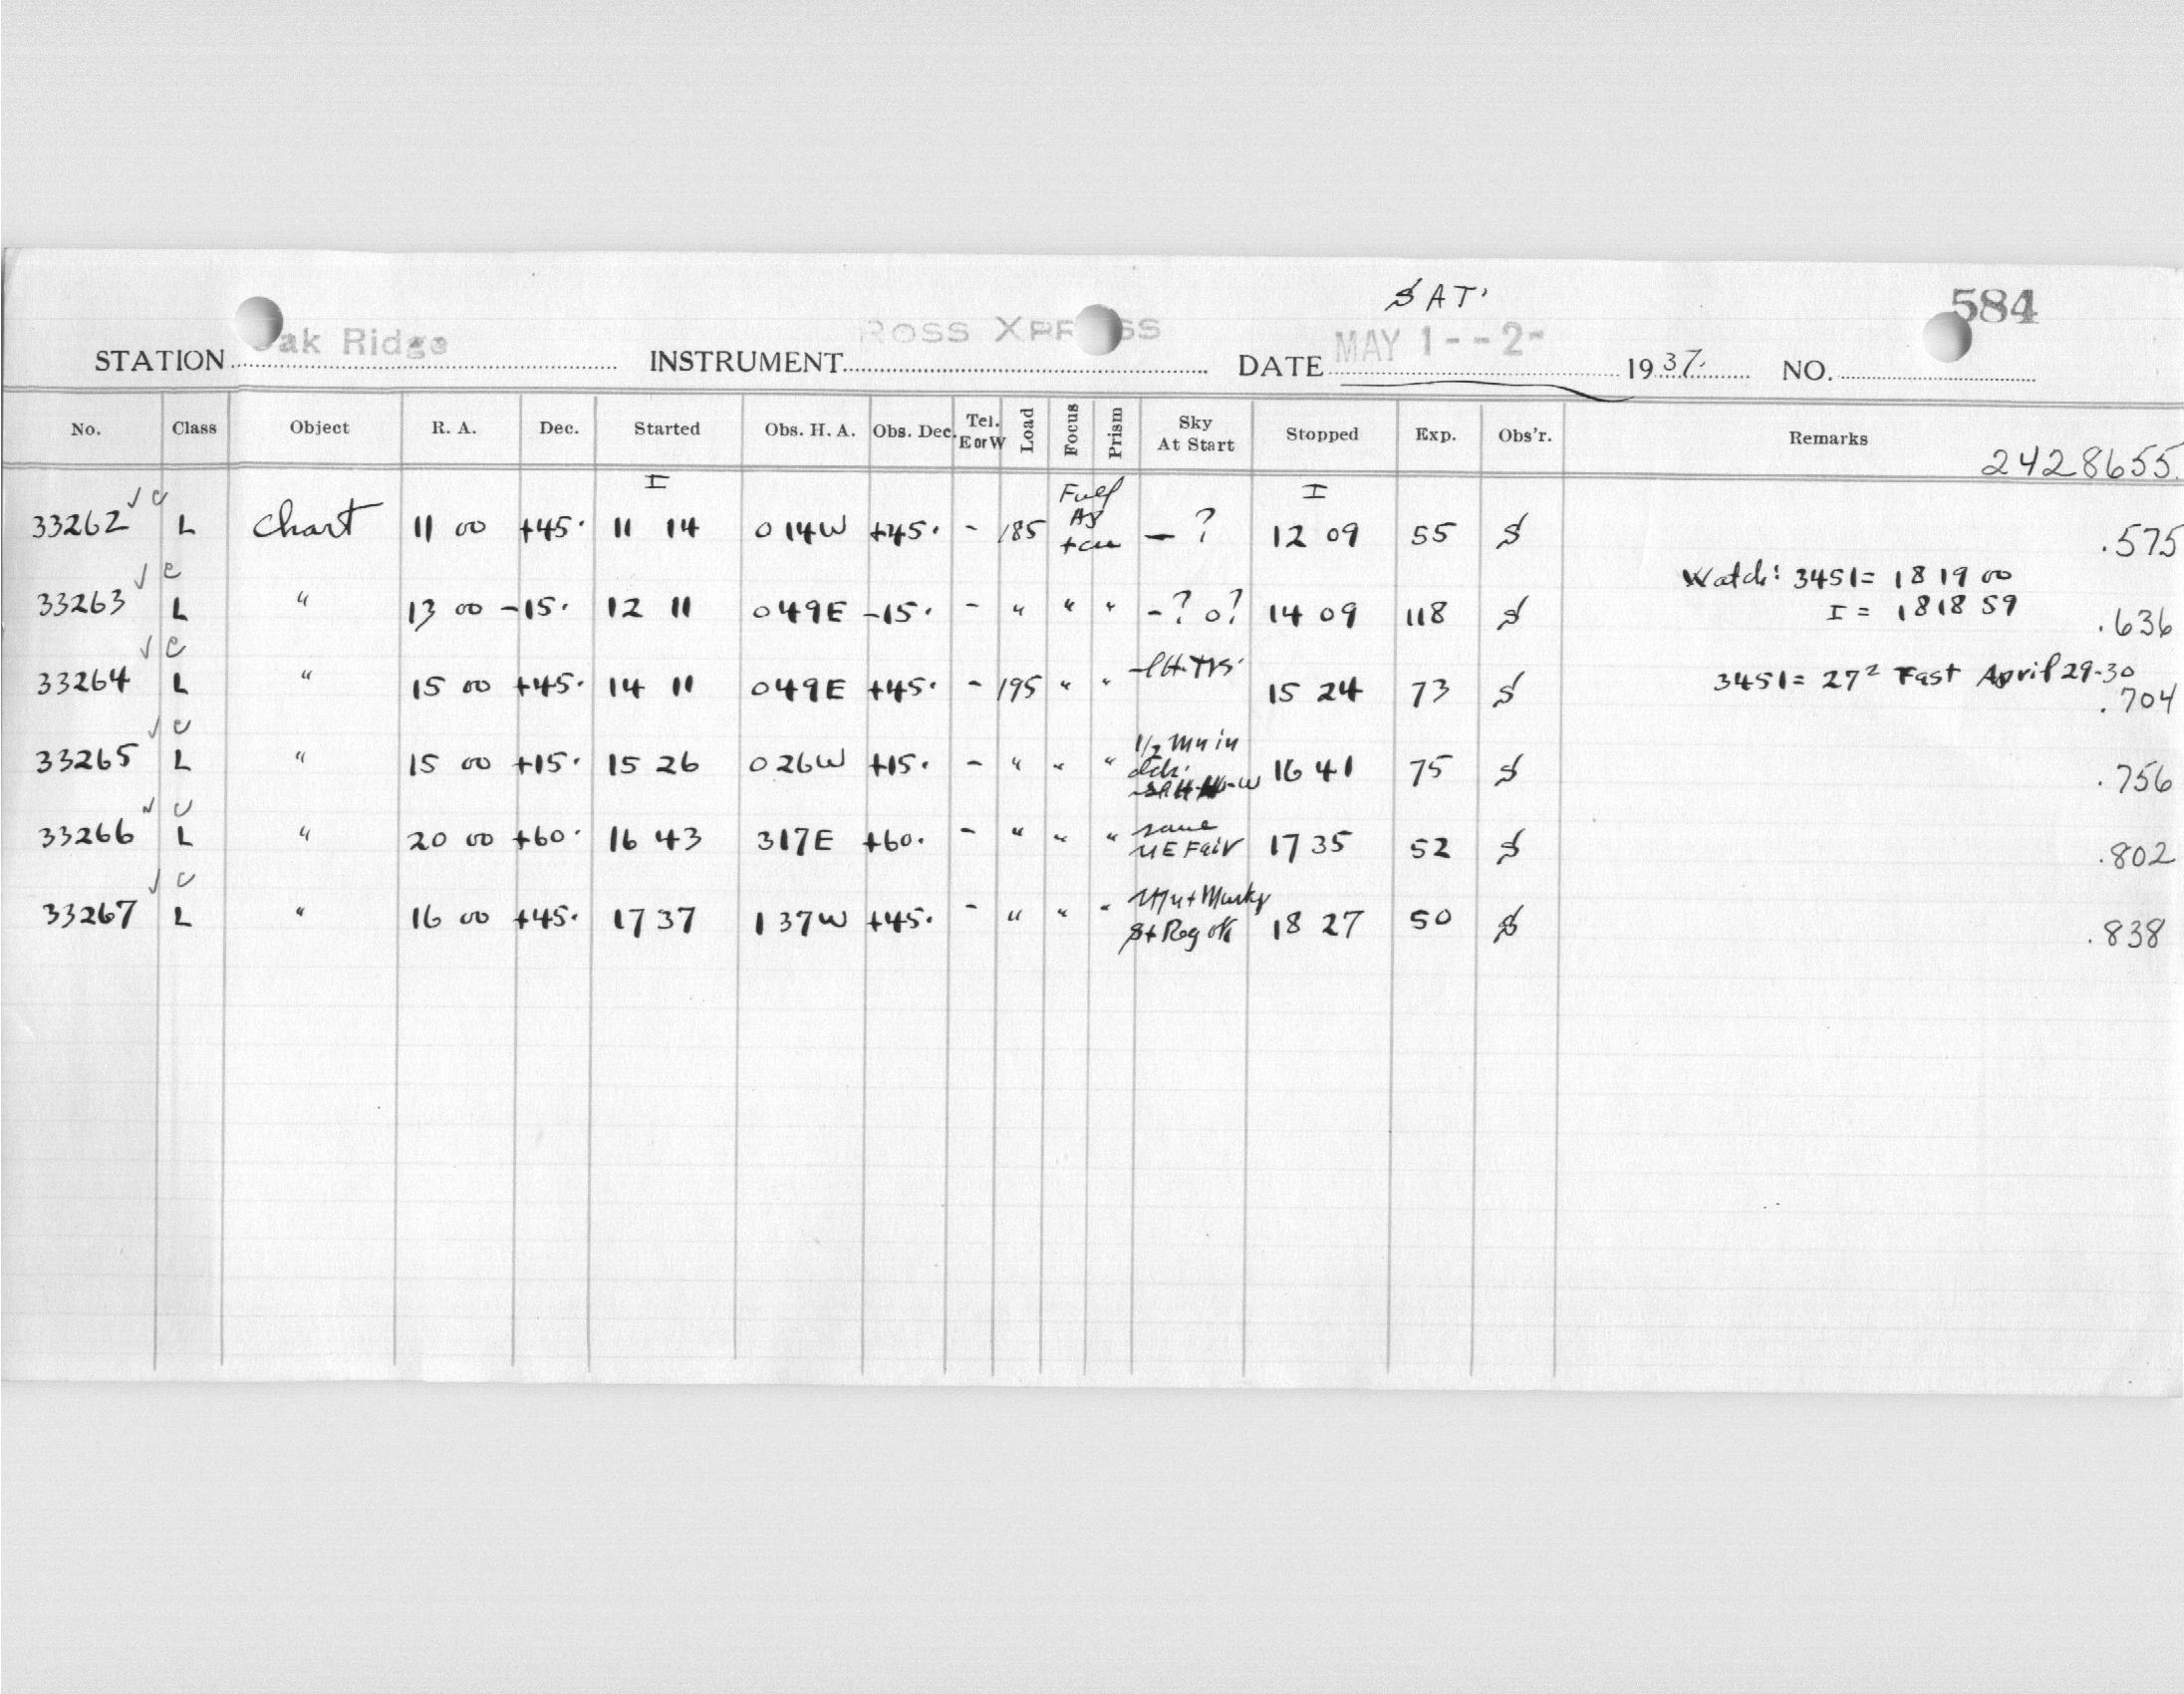 SAT.
584
STATION ak Ridge INSTRUMENT ROSS XPR SS DATE MAY 1--2- 1937. NO.
No. Class Object R. A. Dec. Started Obs. H. A. Obs. Dec. Tel. E or W Load Focus Prism Sky At Start Stopped Exp. Obs'r. Remarks
2428655.
I I
33262 √ c L Chart 11 00 +45° 11 14 0 14W +45° - 185 Full — ? 12 09 55 S .575
Watch: 3451 = 18 19 00
33263 √ c L " 13 00 -15° 12 11 0 49E -15° - " " " -? 0? 14 09 118 S I = 18 18 59 .636
33264 √ c L " 15 00 +45° 14 11 0 49E +45° - 195 " " 15 24 73 S 3451 = 27² Fast April 29-30 .704
33265 √ c L " 15 00 +15° 15 26 0 26W +15° - " " " 1/2 Mn in 16 41 75 S .756
33266 √ c L " 20 00 +60° 16 43 3 17E +60° - " " " same NE Fair 17 35 52 S .802
33267 √ c L " 16 00 +45° 17 37 1 37W +45° - " " " Murky 18 27 50 S .838